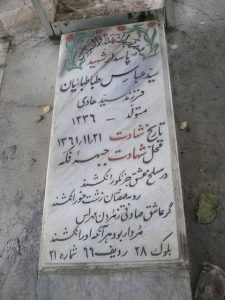 پاسدار شهید
سید عباس طباطبائیان
فرزند سید هادی
متولد - ۱۳۳۶
تاریخ شهادت ۱۳۶۱،۱۱،۲۱
محل شهادت جبهه فکه
در مسلخ عشق جز نکو را نکشند
روبه صفتان زشت خو را نکشند
گر عاشق صادقی ز مردن مهراس
مردار بود هر آنکه او را نکشند
بلوک ۲۸ ردیف ۶۶ شماره ۲۱